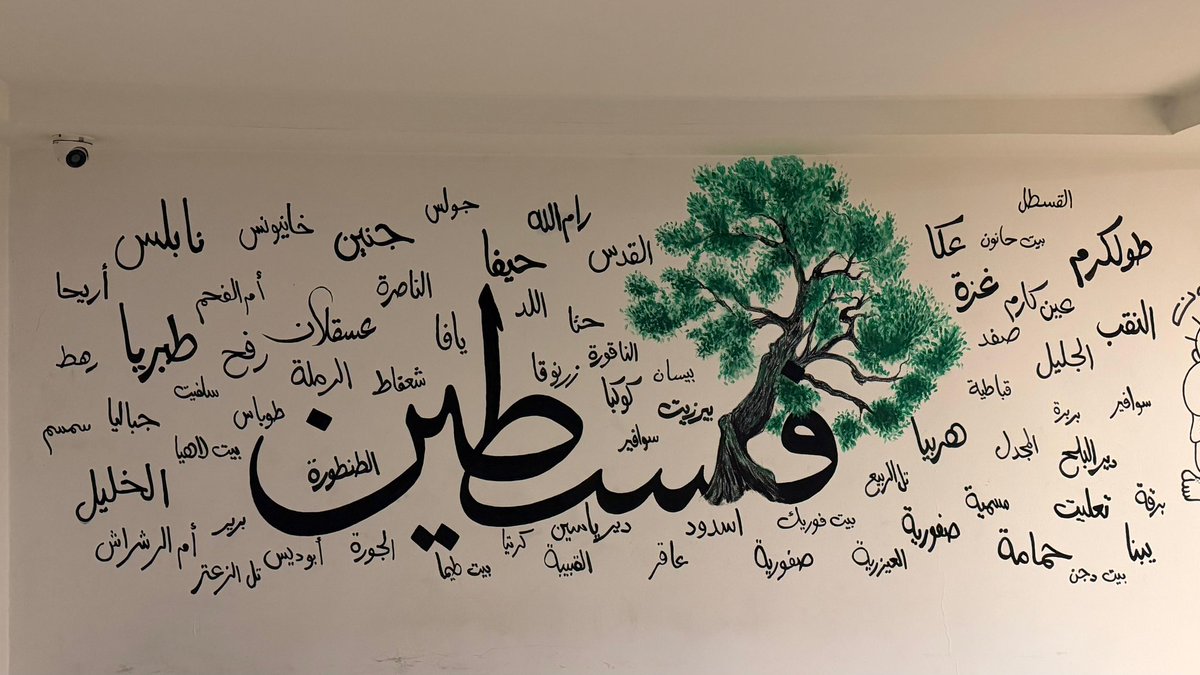 القسطل
جولس
رام الله
خانيونس
نابلس
جنين
عكا
بيت حانون
طولكرم
القدس
حيفا
الناصرة
أم الفحم
أريحا
غزة
عين كارم
النقب
اللد
حتا
يافا
عسقلان
صفد
الجليل
الناقورة
زرنوقا
رفح
طبريا
رهط
بيسان
كوكبا
شعقاط
الرملة
سلفيت
قباطية
سوافير
بربرة
بيرزيت
طوباس
جباليا
سمسم
فلسطين
هربيا
المجدل
دير البلح
سوافير
بيت لاهيا
الطنطورة
الخليل
تل الربيع
مسمية
تعليت
برقة
صفورية
بيت فوريك
اسدود
دير ياسين
كرتيا
برير
أم الرشراش
يبنا
حمامة
العيزرية
صفورية
عاقر
القبيبة
بيت طيما
الجورة
أبو ديس
تل الزعتر
بيت دجن